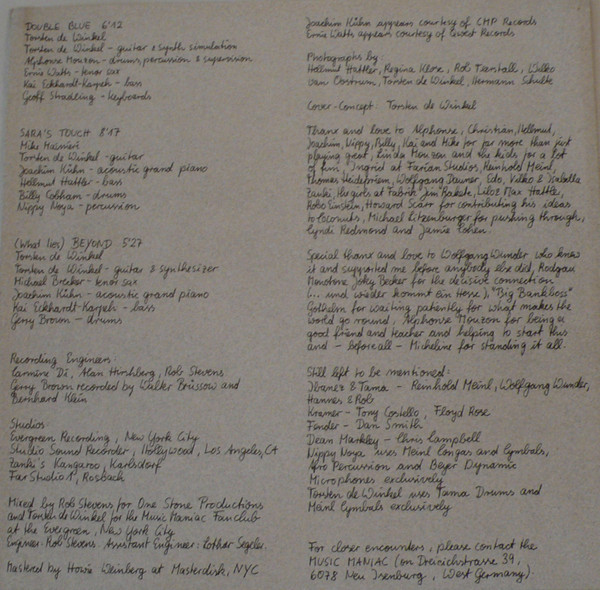 DOUBLE BLUE 6'12
Torsten de Winkel
Torsten de Winkel - guitar & synth simulation
Alphonse Mouzon - drums, percussion & supervision
Ernie Watts - tenor sax
Kai Eckhardt-Karpeh - bass
Geoff Stradling - keyboards
SARA'S TOUCH 8'17
Mike Mainieri
Torsten de Winkel - guitar
Joachim Kühn - acoustic grand piano
Hellmut Hattler - bass
Billy Cobham - drums
Nippy Noya - percussion
(What lies) BEYOND 5'27
Torsten de Winkel
Torsten de Winkel - guitar & synthesizer
Michael Brecker - tenor sax
Joachim Kühn - acoustic grand piano
Kai Eckhardt-Karpeh - bass
Gerry Brown - drums
Recording Engineers:
Carmine Di, Alan Hirshberg, Rob Stevens
Gerry Brown recorded by Walter Brüssow and
Bernhard Klein
Studios:
Evergreen Recording, New York City
Studio Sound Recorder, Hollywood, Los Angeles, CA
Zanki's Kangaroo, Karlsdorf
Far Studio 1, Rosbach
Mixed by Rob Stevens for One Stone Productions
and Torsten de Winkel for the Music Maniac Fanclub
at the Evergreen, New York City
Engineer: Rob Stevens. Assistant Engineer: Lothar Segeler.
Mastered by Howie Weinberg at Masterdisk, NYC
Joachim Kühn appears courtesy of CMP Records
Ernie Watts appears courtesy of Qwest Records
Photographs by:
Hellmut Hattler, Regina Klose, Rob Tierstall, Wilko
van Oostrum, Torsten de Winkel, Hermann Schulte
Cover-Concept: Torsten de Winkel
Thanx and love to Alphonse, Christian, Hellmut,
Joachim, Nippy, Billy, Kai and Mike for far more than just
playing great, Linda Mouzon and the kids for a lot
of fun, Ingrid at Farian Studios, Reinhold Meinl,
Thomas Heidebriem, Wolfgang Dauner, Edo, Volko & Isabella
Zanki, the girls at Fabrik, Jim Rakete, Lilo & Max Hattler,
Robo Einstein, Howard Scarr for contributing his ideas
to Coconuts, Michael Litzenburger for pushing through,
Cyndi Redmond and Jamie Cohen.
Special thanx and love to Wolfgang Wunder who knew
it and supported me before anybody else did, Rodgau
Monotone Joky Becker for the decisive connection
(... und wieder kommt ein Hose), "Big Bankboss"
Gothelm for waiting patiently for what makes the
world go round, Alphonse Mouzon for being a
good friend and teacher and helping to start this
and - before all - Micheline for standing it all.
Still left to be mentioned:
Ibanez & Tama - Reinhold Meinl, Wolfgang Wunder,
Hannes & Rob
Kramer - Tony Costello, Floyd Rose
Fender - Dan Smith
Dean Markley - Chris Campbell
Nippy Noya uses Meinl Congas and Cymbals,
Afro Percussion and Beyer Dynamic
Microphones exclusively
Torsten de Winkel uses Tama Drums and
Meinl Cymbals exclusively
For closer encounters, please contact the
MUSIC MANIAC (on Dreieichstrasse 39,
6078 Neu Isenburg, West Germany).